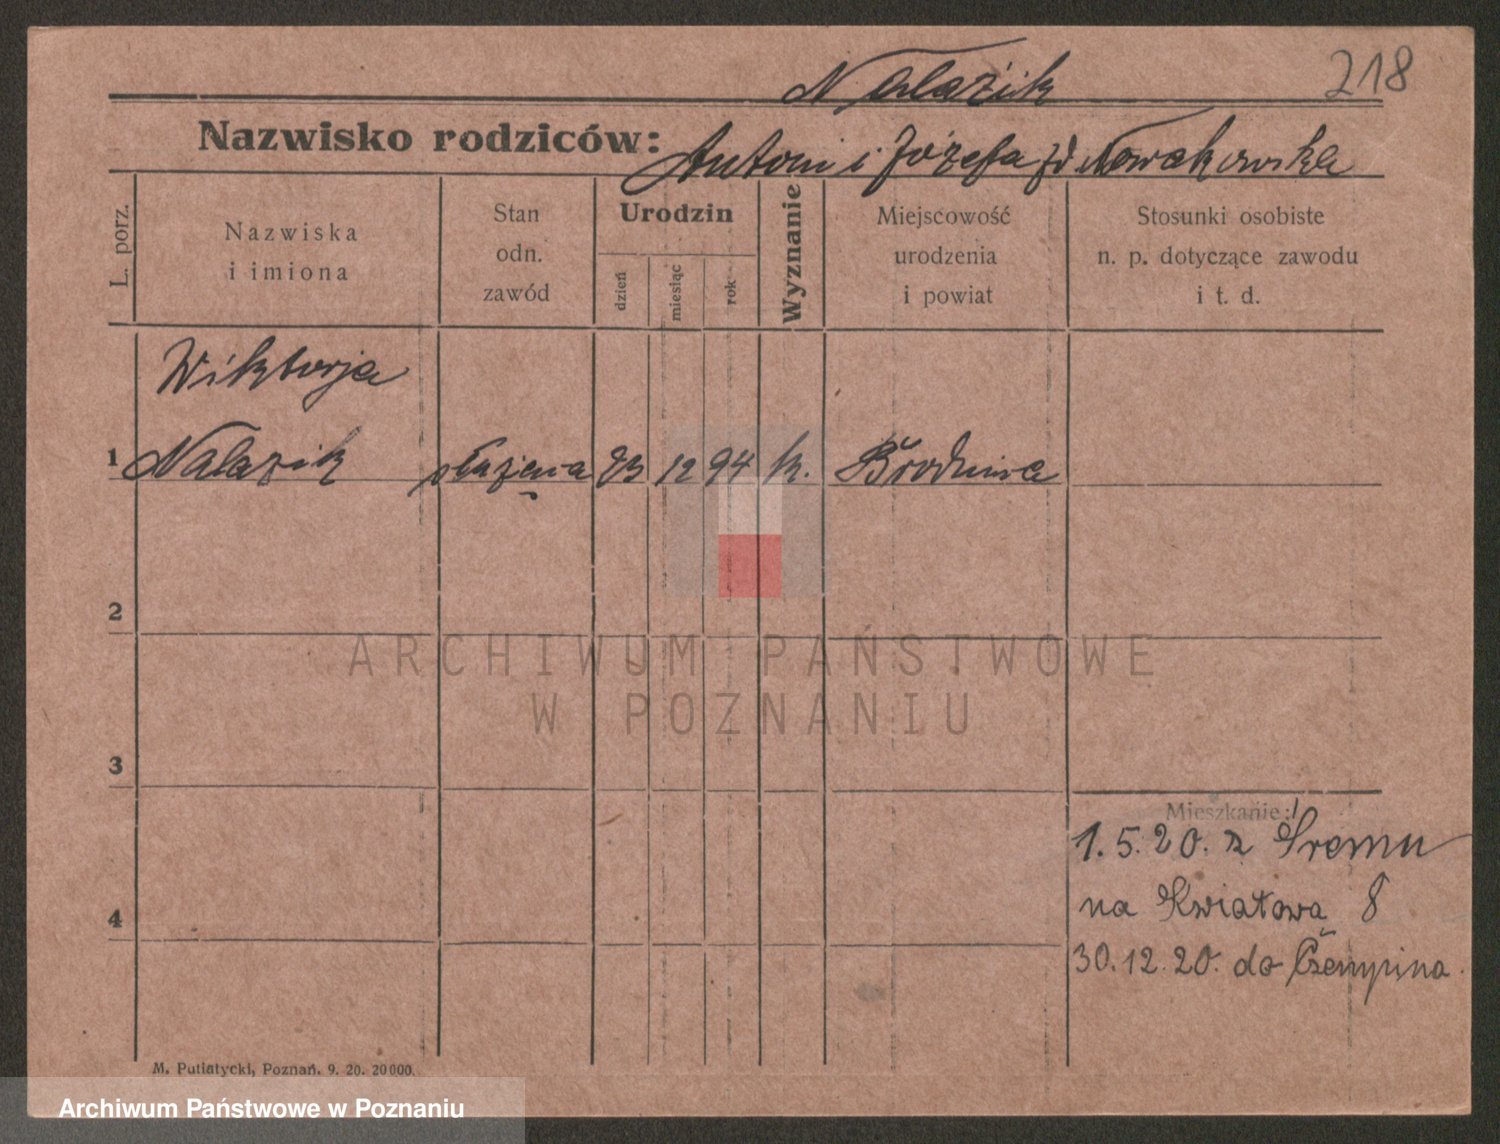 218
Nalazik
Nazwisko rodziców: Antoni i Józefa zd Nowakowska
L. porz.
Nazwiska
i imiona
Stan
odn.
zawód
Urodzin
dzień
miesiąc
rok
Wyznanie
Miejscowość
urodzenia
i powiat
Stosunki osobiste
n. p. dotyczące zawodu
i t. d.
Wiktorja
1 Nalazik służąca 23 12 94 k. Brodnica
2
3
4
ARCHIWUM PAŃSTWOWE
W POZNANIU
Mieszkanie:
1.5.20. z Śremu
na Kwiatową 8
30.12.20. do Czempina.
M. Putiatycki, Poznań. 9. 20. 20000.
Archiwum Państwowe w Poznaniu